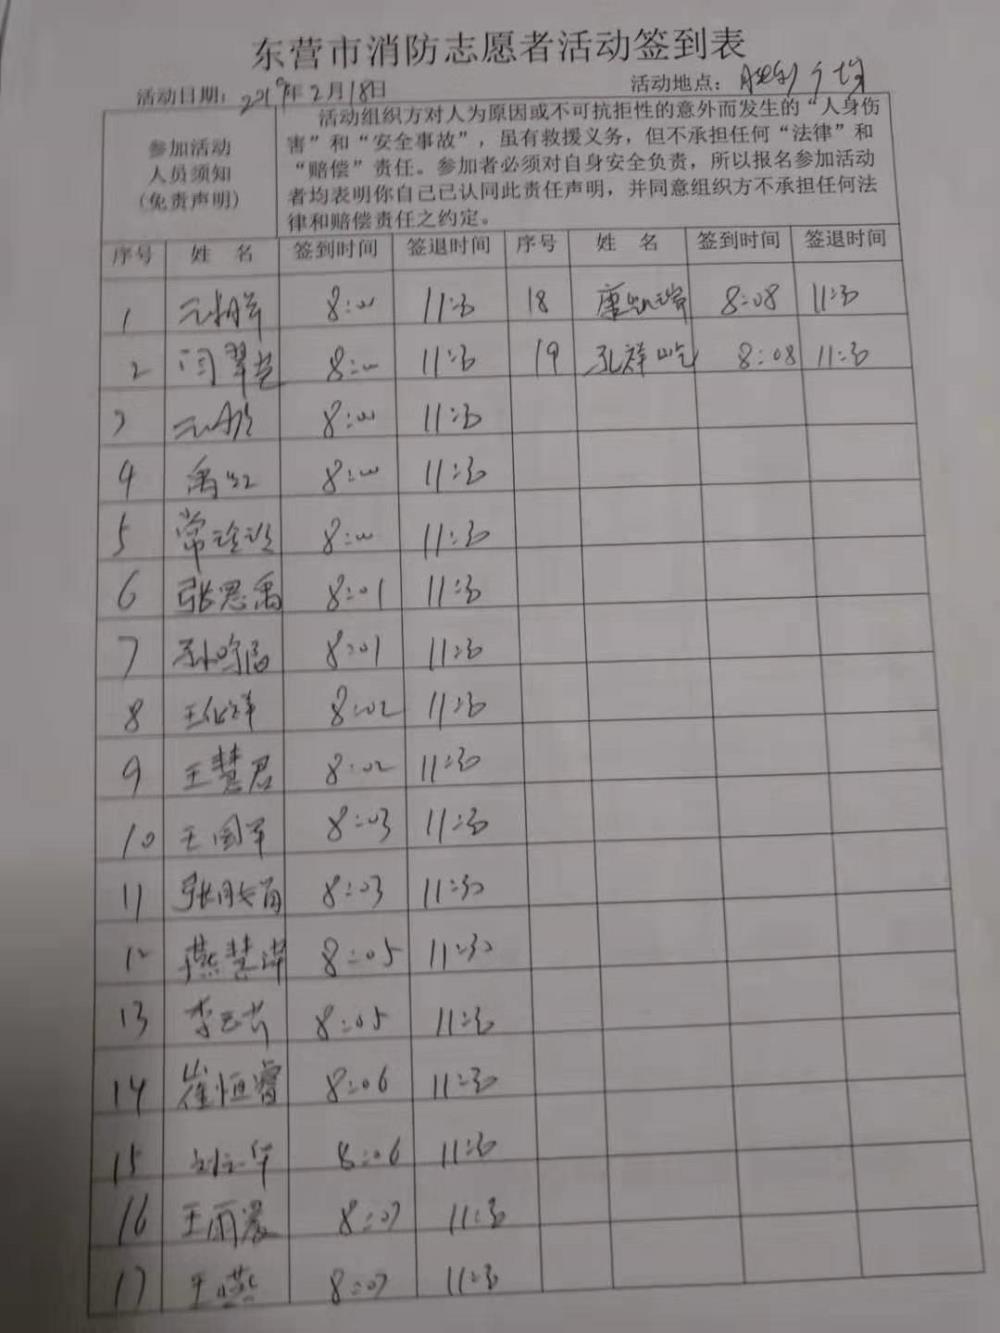 东营市消防志愿者活动签到表
活动日期：2019年2月18日 活动地点：胜利广场
参加活动
人员须知
（免责声明）
活动组织方对人为原因或不可抗拒性的意外而发生的“人身伤
害”和“安全事故”，虽有救援义务，但不承担任何“法律”和
“赔偿”责任。参加者必须对自身安全负责，所以报名参加活动
者均表明你自己已认同此责任声明，并同意组织方不承担任何法
律和赔偿责任之约定。
序号 姓 名 签到时间 签退时间 序号 姓 名 签到时间 签退时间
1 8:00 11:30 18 康凯瑞 8:08 11:30
2 闫翠芝 8:00 11:30 19 孔祥屹 8:08 11:30
3 8:00 11:30
4 禹红 8:00 11:30
5 常玲玲 8:00 11:30
6 张思禹 8:01 11:30
7 8:01 11:30
8 王化祥 8:02 11:30
9 王慧君 8:02 11:30
10 王国军 8:03 11:30
11 8:03 11:30
12 燕慧萍 8:05 11:30
13 8:05 11:30
14 崔恒睿 8:06 11:30
15 刘立军 8:06 11:30
16 王雨晨 8:07 11:30
17 王燕 8:07 11:30